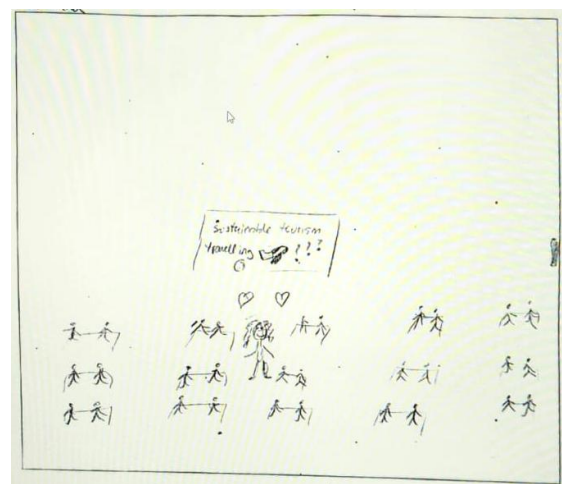 Sustainable tourism
travelling ???